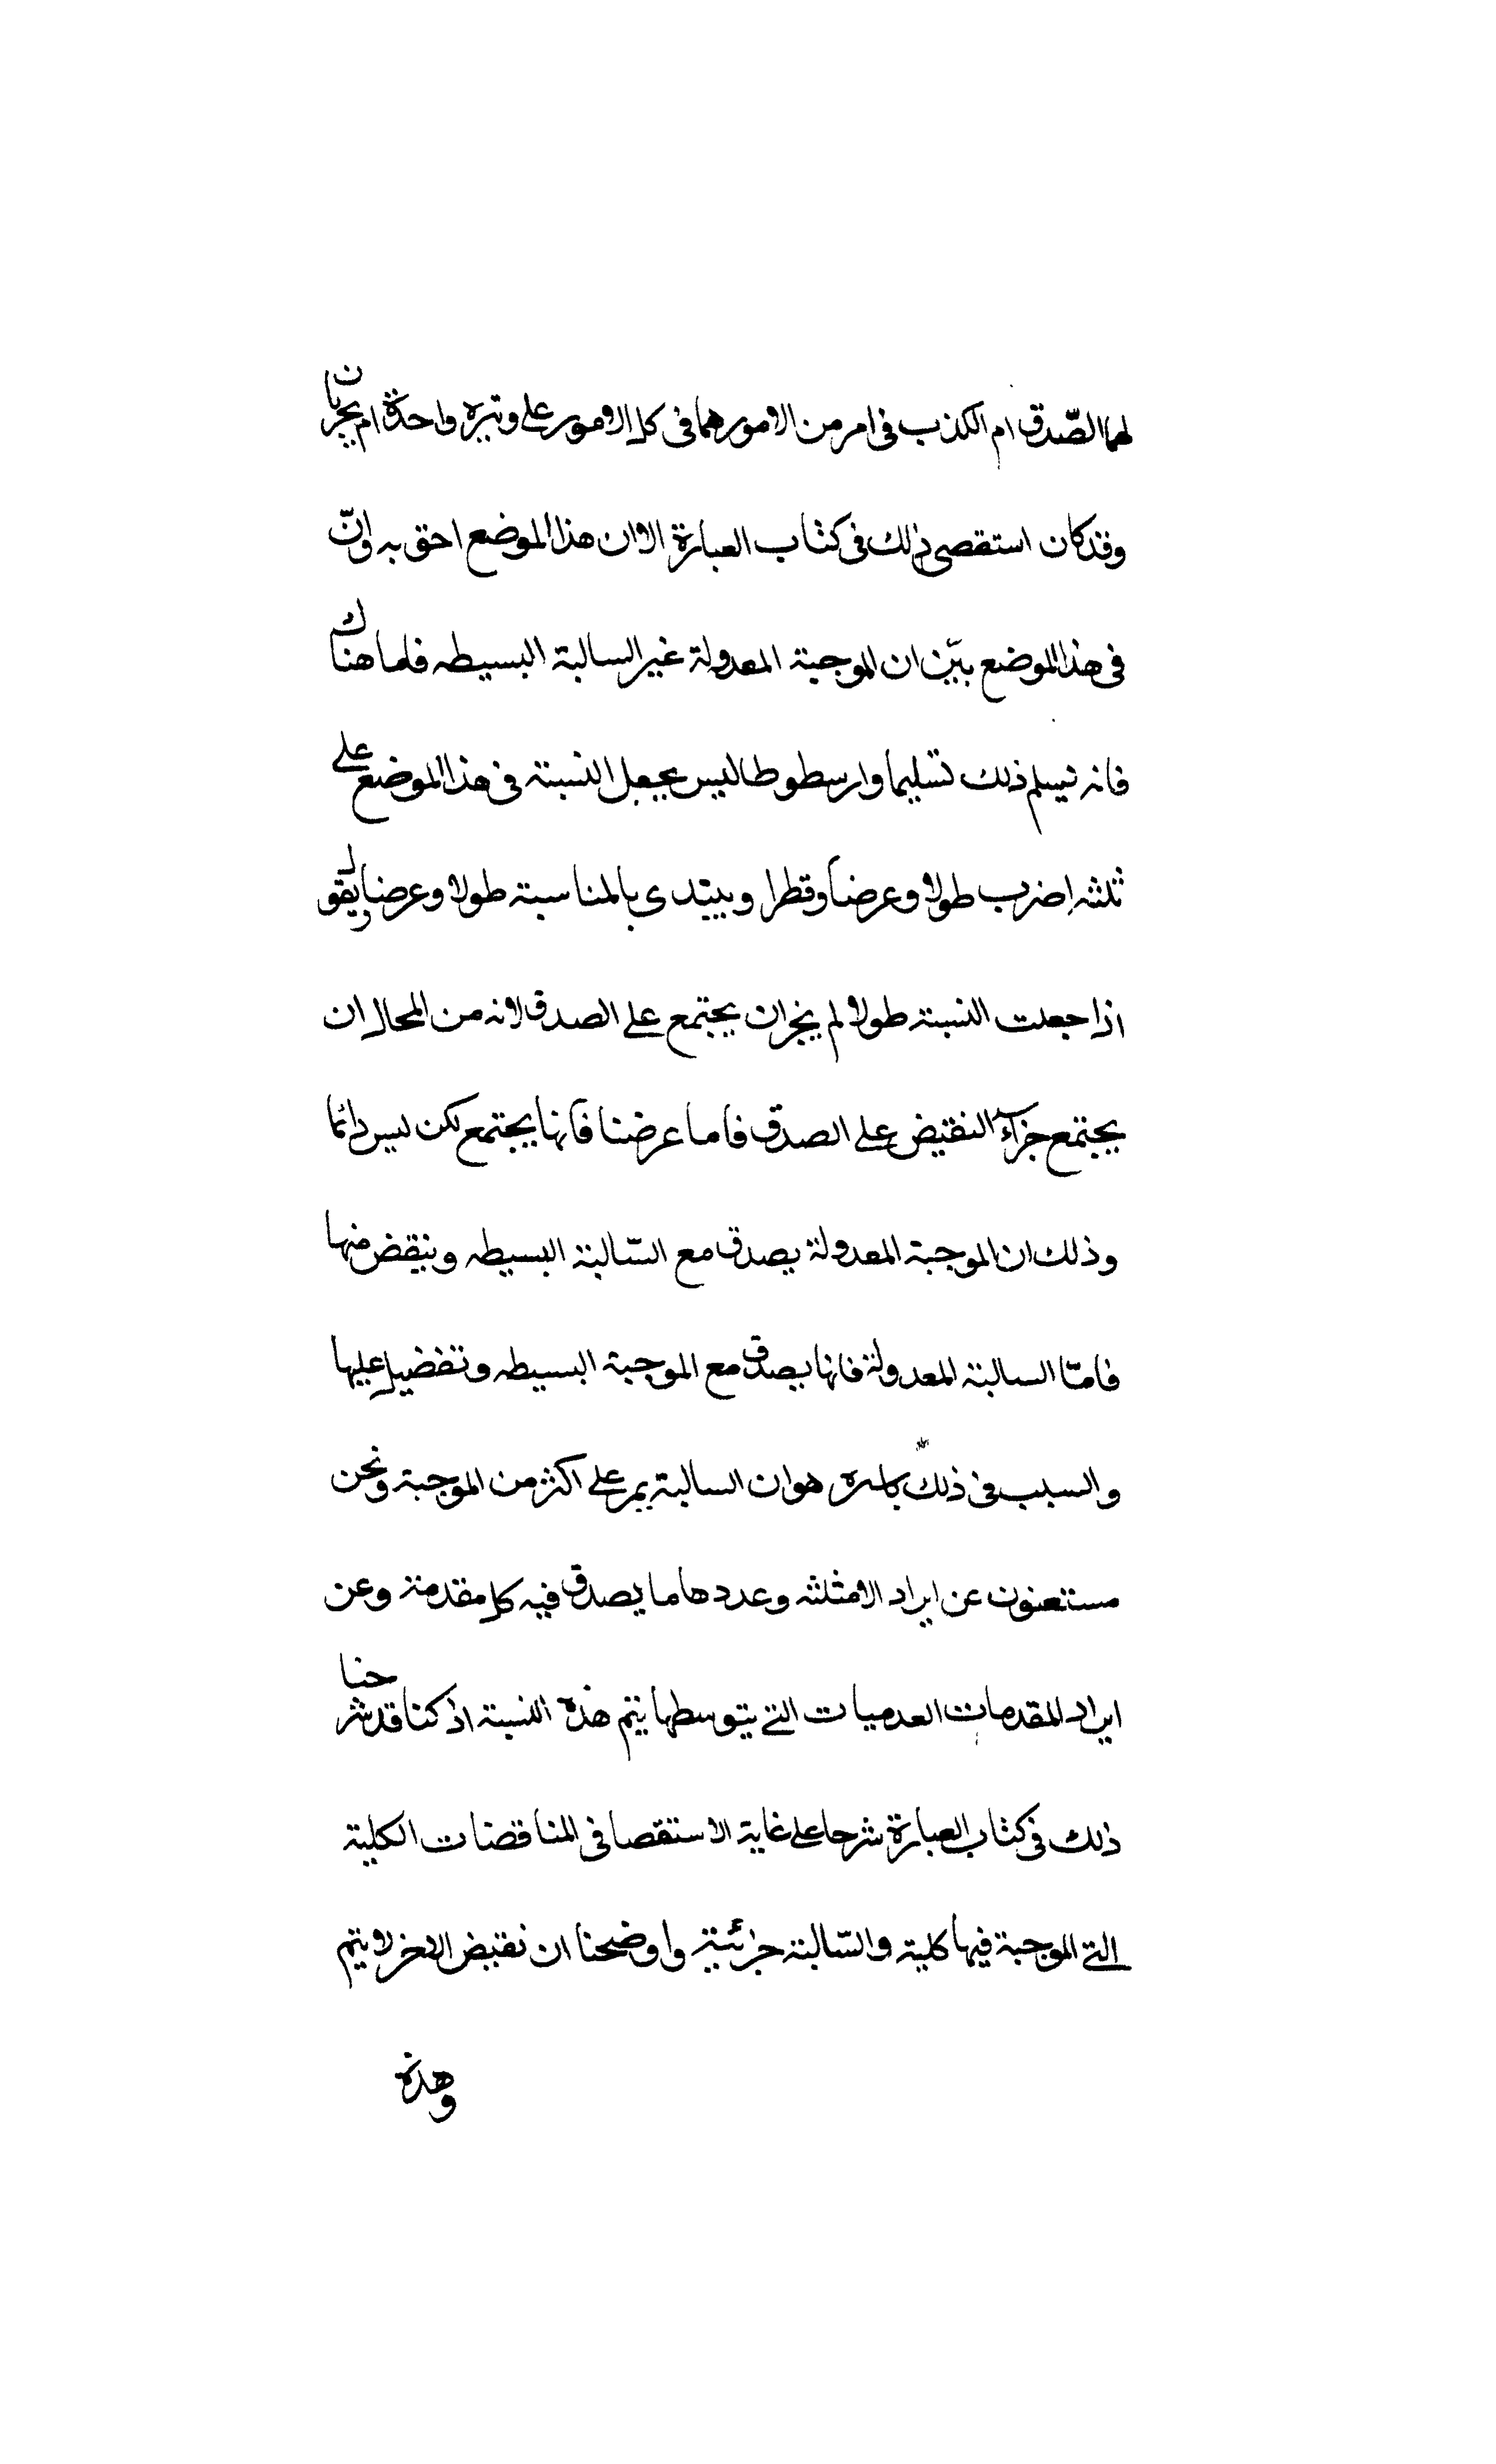 لهما الصّدق ام الكذب فى امر من الامور هما فى كل الامور على وتيرة واحدة ام يجريان
وقد كان استقصى ذلك فى كتاب العبارة الا ان هذا الموضع احق به وانّ
فى هذا الموضع بيّن ان الموجبة المعدولة غير السالبة البسيطه فلما هناك
فانه تيسلم ذلك تسليما وارسطوطاليس يجعل النسبة فى هذا الموضع على
ثلثه اضرب طولا وعرضا وقطرا ويبتدى بالمناسبة طولا وعرضا ويقول
اذا جعلت النسبة طولا لم يجز ان يجتمع على الصدق لانه من المحال ان
يجتمع جزآء النقيض على الصدق فاما عرضا فانها يجتمع لكن ليس دائما
وذلك ان الموجبة المعدولة يصدق مع السّالبة البسيطه وينقض منها
فامّا السالبة المعدولة فانها يصدق مع الموجبة البسيطه وتفضيل عليها
والسبب فى ذلك باسره هو ان السالبة يمر على اكثر من الموجبة ونحن
مستغنون عن ايراد الامثلثه وعددها ما يصدق فيه كل مقدمة وعن
ايراد المقدمات العدميات التى يتوسطها يتم هذه النسبة اذ كنا قد شرحنا
ذلك فى كتاب العبارة شرحا على غاية الاستقصا فى المناقضات الكلية
التى الموجبة فيها كلية والسّالبة جزئية واوضحنا ان نقيض الاخر لا يتم
وهذه